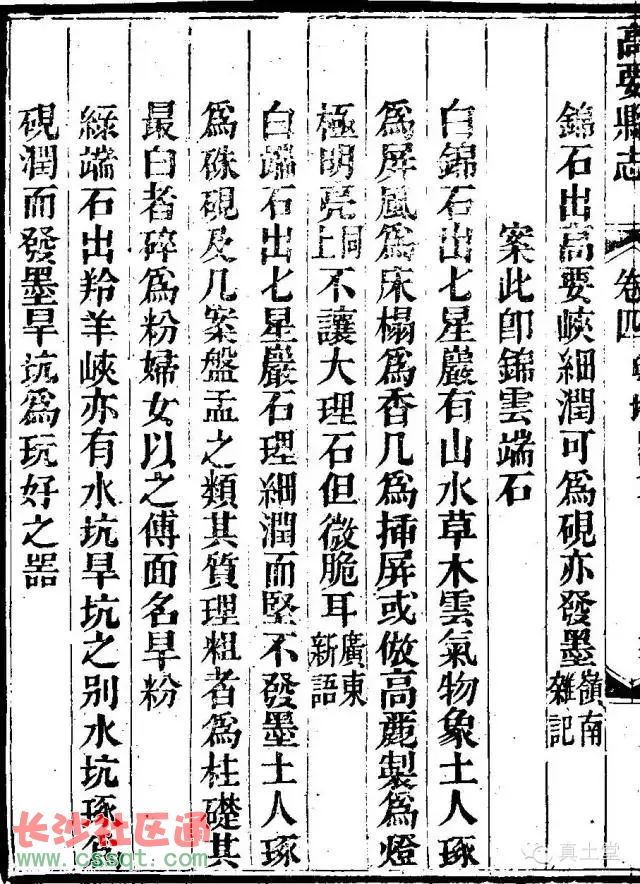 高要縣志 卷四
錦石出高要峽細潤可爲硯亦發墨嶺南雜記
案此卽錦雲端石
白錦石出七星巖有山水草木雲氣物象土人琢
爲屏風爲床榻爲香几爲揷屏或倣高麗製爲燈
極明亮同上不讓大理石但微脆耳廣東新語
白端石出七星巖石理細潤而堅不發墨土人琢
爲硃硯及几案盤盂之類其質理粗者爲柱礎其
最白者碎爲粉婦女以之傅面名旱粉
綠端石出羚羊峽亦有水坑旱坑之别水坑琢爲
硯潤而發墨旱坑爲玩好之器
长沙社区通
www.cssqt.com
真土堂